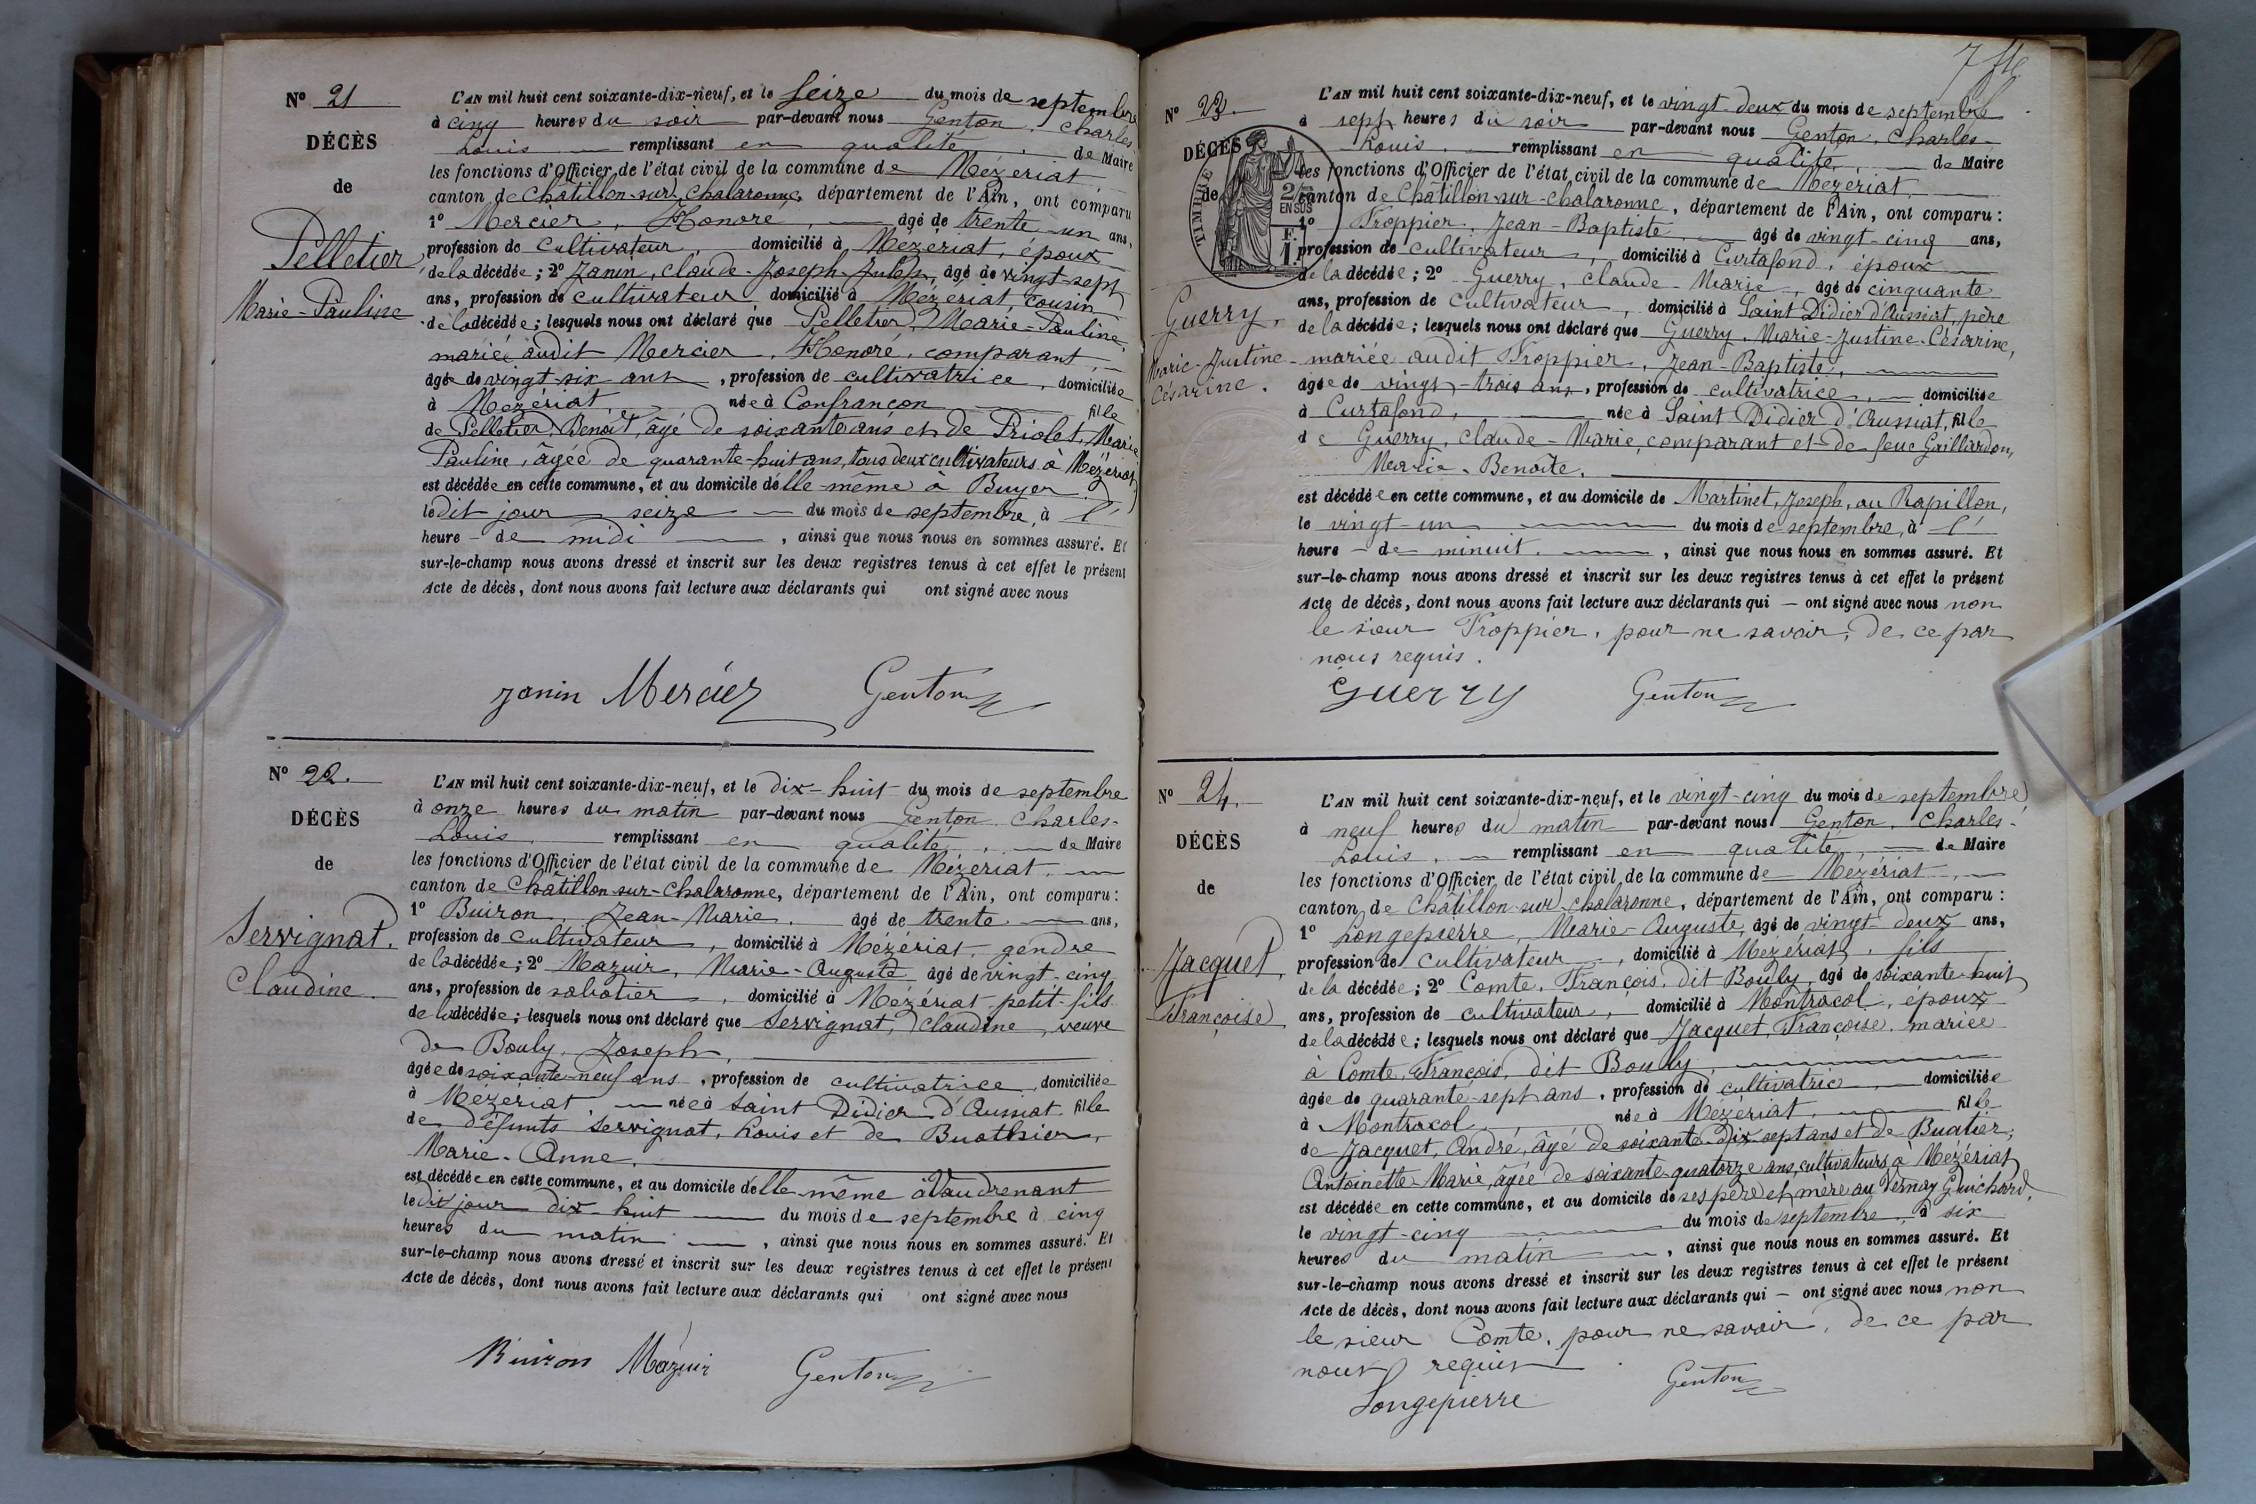 N° 21
DÉCÈS
de
Pelletier
Marie-Pauline
L'AN mil huit cent soixante-dix-neuf, et le seize du mois de septembre
à cinq heures du soir par-devant nous Genton, Charles
Louis remplissant en qualité de Maire
les fonctions d'Officier de l'état civil de la commune de Mézériat
canton de Châtillon-sur-Chalaronne, département de l'Ain, ont comparu
1° Mercier, Honoré, âgé de trente-un ans,
profession de cultivateur, domicilié à Mézériat, époux
de la décédée; 2° Janin, Claude-Joseph-Jules, âgé de vingt-sept
ans, profession de cultivateur domicilié à Mézériat cousin
de la décédée; lesquels nous ont déclaré que Pelletier, Marie-Pauline,
mariée audit Mercier, Honoré, comparant
âgée de vingt-six ans, profession de cultivatrice, domiciliée
à Mézériat, née à Confrançon fille
de Pelletier, Benoît, âgé de soixante ans et de Priolet, Marie
Pauline, âgée de quarante-huit ans, tous deux cultivateurs à Mézériat
est décédée en cette commune, et au domicile d'elle-même à Buyer
ledit jour seize du mois de septembre, à l'
heure de midi, ainsi que nous nous en sommes assuré. Et
sur-le-champ nous avons dressé et inscrit sur les deux registres tenus à cet effet le présent
Acte de décès, dont nous avons fait lecture aux déclarants qui ont signé avec nous
Janin Mercier Genton
N° 22.
DÉCÈS
de
Servignat.
Claudine.
L'AN mil huit cent soixante-dix-neuf, et le dix-huit du mois de septembre
à onze heures du matin par-devant nous Genton Charles-
Louis, remplissant en qualité, de Maire
les fonctions d'Officier de l'état civil de la commune de Mézériat,
canton de Châtillon-sur-Chalaronne, département de l'Ain, ont comparu:
1° Buiron, Jean-Marie, âgé de trente ans,
profession de cultivateur, domicilié à Mézériat, gendre
de la décédée; 2° Mazuir, Marie-Auguste âgé de vingt-cinq
ans, profession de sabotier, domicilié à Mézériat petit-fils
de la décédée; lesquels nous ont déclaré que Servignat, Claudine, veuve
de Bouly, Joseph,
âgée de soixante-neuf ans, profession de cultivatrice, domiciliée
à Mézériat, née à Saint Didier d'Aussiat fille
de défunts Servignat, Louis et de Buathier,
Marie-Anne,
est décédée en cette commune, et au domicile d'elle même à Vaudrenant
ledit jour dix-huit du mois de septembre à cinq
heures du matin, ainsi que nous nous en sommes assuré. Et
sur-le-champ nous avons dressé et inscrit sur les deux registres tenus à cet effet le présent
Acte de décès, dont nous avons fait lecture aux déclarants qui ont signé avec nous
Buiron Mazuir Genton
N° 23.
DÉCÈS
de
TIMBRE
2/10 EN SUS
F. 1.
Guerry,
Marie-Justine
Césarine.
L'AN mil huit cent soixante-dix-neuf, et le vingt-deux du mois de septembre
à sept heures du soir par-devant nous Genton, Charles-
Louis, remplissant en qualité de Maire
les fonctions d'Officier de l'état civil de la commune de Mézériat,
canton de Châtillon-sur-Chalaronne, département de l'Ain, ont comparu:
1° Froppier, Jean-Baptiste âgé de vingt-cinq ans,
profession de cultivateur, domicilié à Curtafond, époux
de la décédée; 2° Guerry, Claude-Marie, âgé de cinquante
ans, profession de cultivateur, domicilié à Saint Didier d'Aussiat, père
de la décédée; lesquels nous ont déclaré que Guerry, Marie-Justine-Césarine,
mariée audit Froppier, Jean-Baptiste,
âgée de vingt-trois ans, profession de cultivatrice, domiciliée
à Curtafond, née à Saint Didier d'Aussiat, fille
de Guerry, Claude-Marie, comparant et de feue Gaillardon,
Marie-Benoîte,
est décédée en cette commune, et au domicile de Martinet, Joseph, au Papillon,
le vingt-un du mois de septembre, à l'
heure de minuit, ainsi que nous nous en sommes assuré. Et
sur-le-champ nous avons dressé et inscrit sur les deux registres tenus à cet effet le présent
Acte de décès, dont nous avons fait lecture aux déclarants qui ont signé avec nous non
le sieur Froppier, pour ne savoir, de ce par
nous requis.
Guerry Genton
N° 24.
DÉCÈS
de
Jacquet,
Françoise
L'AN mil huit cent soixante-dix-neuf, et le vingt-cinq du mois de septembre
à neuf heures du matin par-devant nous Genton, Charles-
Louis, remplissant en qualité de Maire
les fonctions d'Officier de l'état civil de la commune de Mézériat,
canton de Châtillon-sur-Chalaronne, département de l'Ain, ont comparu:
1° Longepierre, Marie-Auguste, âgé de vingt-deux ans,
profession de cultivateur, domicilié à Mézériat, fils
de la décédée; 2° Comte, François, dit Bouly, âgé de soixante-huit
ans, profession de cultivateur, domicilié à Montracol, époux
de la décédée; lesquels nous ont déclaré que Jacquet, Françoise, mariée
à Comte, François, dit Bouly,
âgée de quarante-sept ans, profession de cultivatrice, domiciliée
à Montracol née à Mézériat, fille
de Jacquet, André, âgé de soixante-dix-sept ans et de Buatier,
Antoinette Marie, âgée de soixante-quatorze ans, cultivateurs à Mézériat
est décédée en cette commune, et au domicile de ses père et mère au Vernay Guichard,
le vingt-cinq du mois de septembre, à six
heures du matin, ainsi que nous nous en sommes assuré. Et
sur-le-champ nous avons dressé et inscrit sur les deux registres tenus à cet effet le présent
Acte de décès, dont nous avons fait lecture aux déclarants qui ont signé avec nous non
le sieur Comte, pour ne savoir, de ce par
nous requis
Longepierre Genton